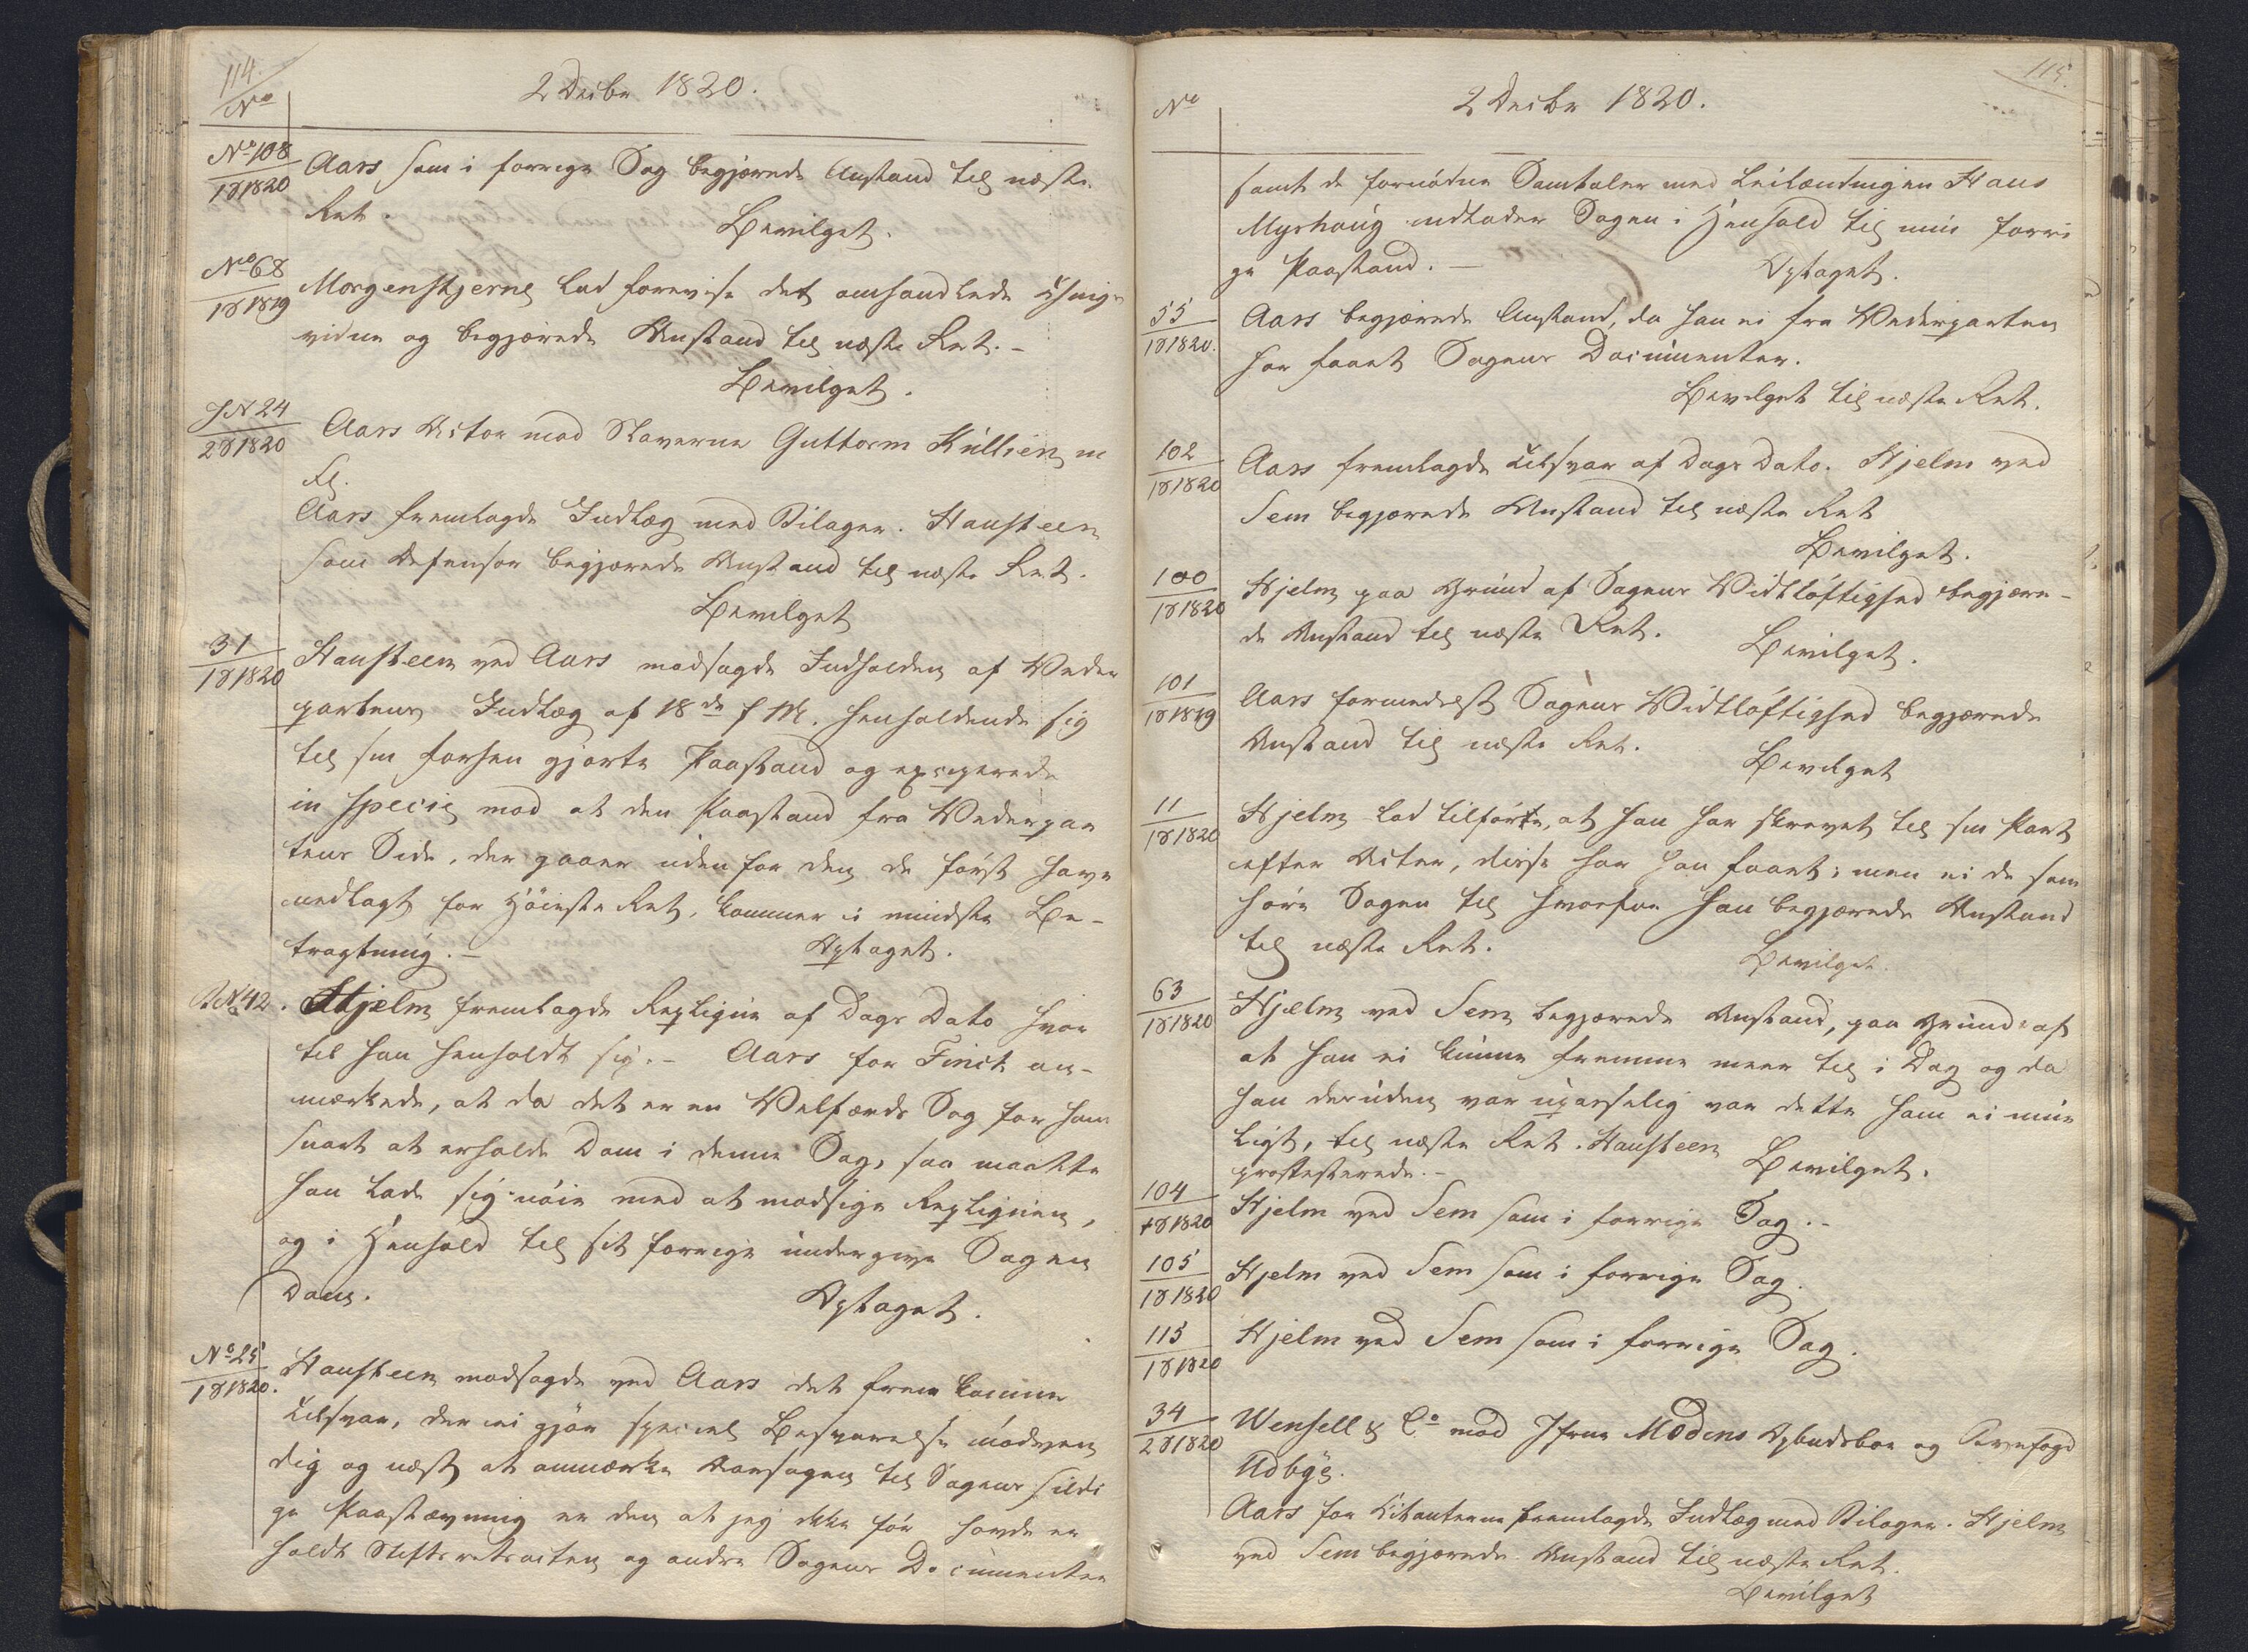 114.
No
2 Decbr 1820.
No 108
1 S 1820
Aars som i forrige Sag begjærede Anstand til næste
Ret.
Bevilget.
No 68
1 S 1819
Morgenstjerne lod forevise det omhandlede Things-
vidne og begjærede Anstand til næste Ret. –
Bevilget.
JN 24
2 S 1820
Aars Actor mod Slaverne Guttorm Kullien m
fl.
Aars fremlagde Indlæg med Bilager. Hansteen
som Defensor begjærede Anstand til næste Ret.
Bevilget
31
1 S 1820
Hansteen ved Aars modsagde Indholden af Veder
partens Indlæg af 18de f M. henholdende sig
til sin forhen gjorte Paastand og exciperede
in specie mod at den Paastand fra Vederpar
tens Side, der gaaer uden for den de først have
nedlagt for Høieste Ret, kommer i mindste Be-
tragtning. –
Optaget.
No 42.
Hjelm fremlagde Repliqve af Dags Dato hvor
til han henholdt sig. – Aars for Finck an-
mærkede, at da det er en Velfærds Sag for ham
snart at erholde Dom i denne Sag, saa maatte
han lade sig nøie med at modsige Repliqven,
og i Henhold til sit forrige undergive Sagen
Dom.
Optaget.
No 25
1 S 1820.
Hansteen modsagde ved Aars det fremkomne
Tilsvar, der ei gjør speciel Besvarelse nødven
dig og næst at anmærke Aarsagen til Sagens sildi
ge Paastævning er den at jeg ikke før havde er
holdt Stiftsretsacten og andre Sagens Documenter
115.
No
2 Decbr 1820.
samt de fornødne Samtaler med Leilændingen Hans
Myrhaug indlader Sagen i Henhold til min forri
ge Paastand. –
Optaget.
55
1 S 1820.
Aars begjærede Anstand, da han ei fra Vederparten
har faaet Sagens Documenter.
Bevilget til næste Ret.
102
1 S 1820
Aars fremlagde Tilsvar af Dags Dato. Hjelm ved
Sem begjærede Anstand til næste Ret
Bevilget.
100
1 S 1820
Hjelm paa Grund af Sagens Vidtløftighed begjære-
de Anstand til næste Ret.
Bevilget.
101
1 S 1819
Aars formedelst Sagens Vidtløftighed begjærede
Anstand til næste Ret.
Bevilget
11
1 S 1820
Hjelm lod tilføre, at han har skrevet til sin Part
efter Acter, disse har han faaet; men ei de som
høre Sagen til hvorfor han begjærede Anstand
til næste Ret.
Bevilget.
63
1 S 1820
Hjelm ved Sem begjærede Anstand, paa Grund af
at han ei kunne fremme meer til i Dag og da
han desuden var upasselig var dette ham ei mue
ligt, til næste Ret. Hansteen
protesterede. –
Bevilget.
104
1 S 1820
Hjelm ved Sem som i forrige Sag. –
105
1 S 1820
Hjelm ved Sem som i forrige Sag.
115
1 S 1820
Hjelm ved Sem som i forrige Sag.
34
2 S 1820
Wensell & Co mod Jfrue Modens Opbudsboe og Byefoged
Udbye.
Aars for Citanterne fremlagde Indlæg med Bilager. Hjelm
ved Sem begjærede Anstand til næste Ret.
Bevilget